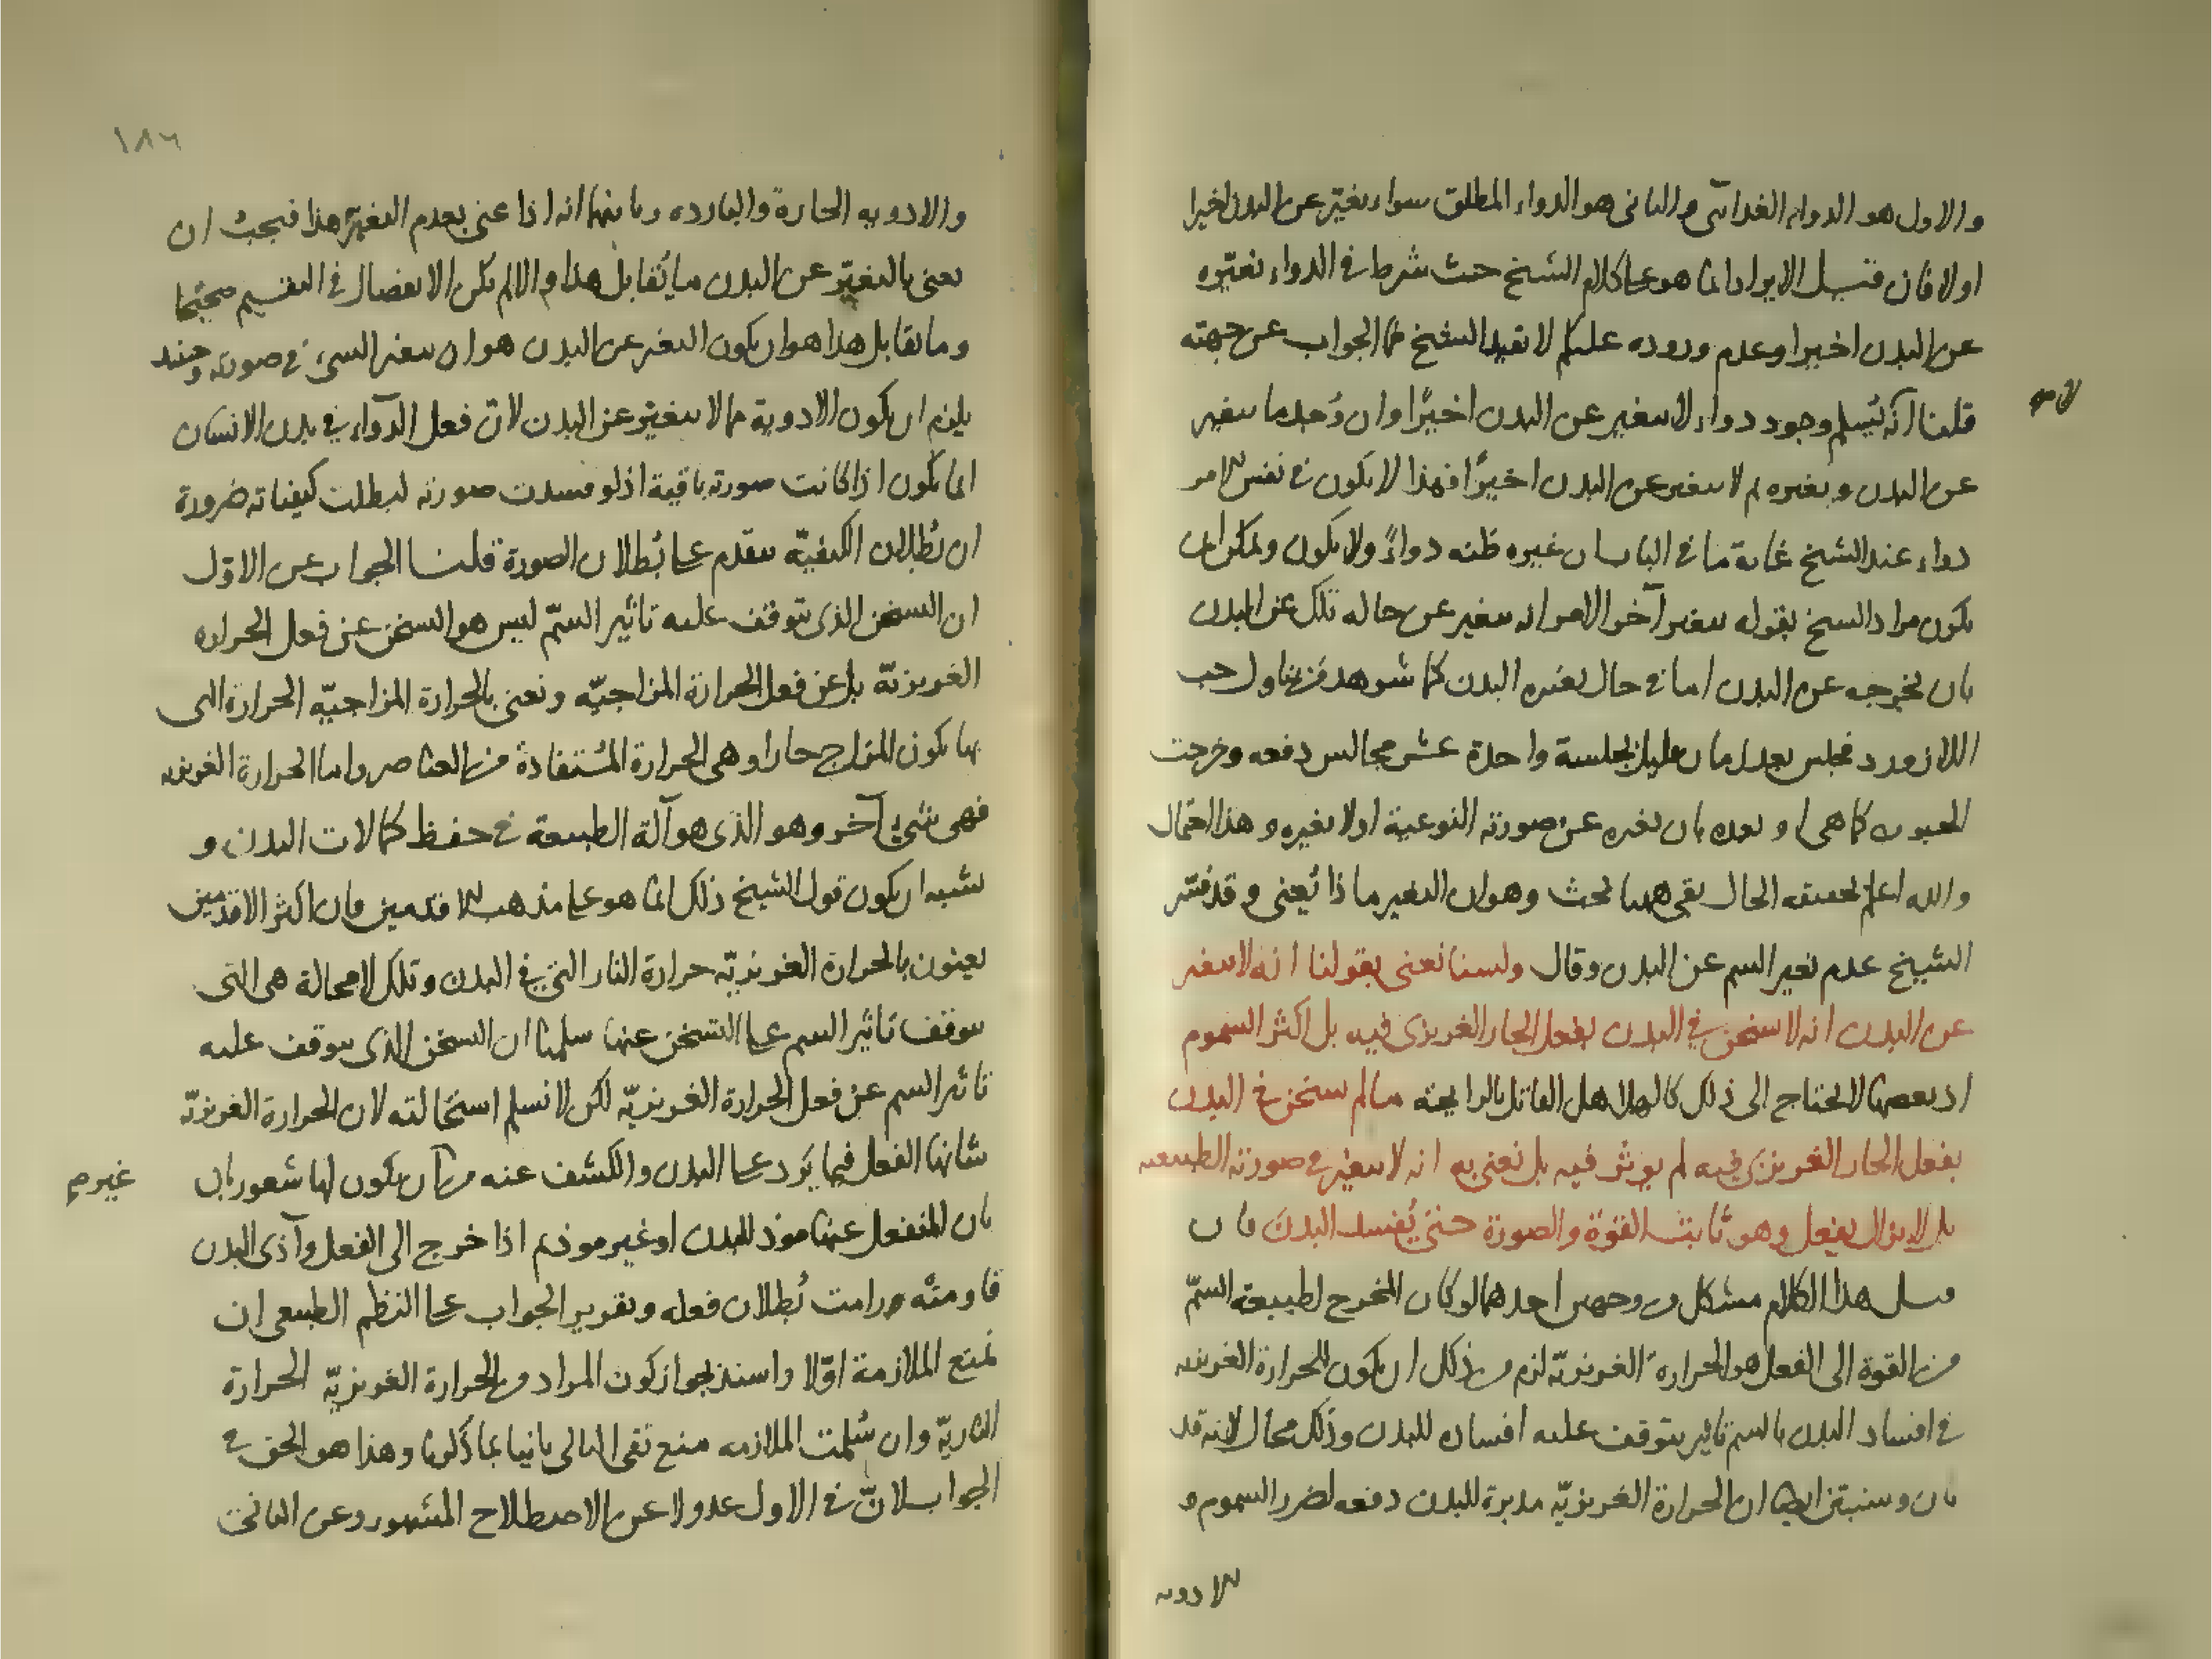 والاول هو الدواء الغذائى والثانى هو الدواء المطلق سواء يغير عن البدن اخيرا
اولا فان قيل الايراد انما هو على كلام الشيخ حيث شرط فى الدواء تغيره
عن البدن اخيرا وعدم وروده عليكم لا يفيد الشيخ فما الجواب عن جهته
قلنا انه وجود دواء لا يتغير عن البدن اخيرا وان وجد ما يتغير
لا نم
عن البدن ويغيره ثم لا يتغير عن البدن اخيرا فهذا لا يكون فى نفس الامر
دواء عند الشيخ غاية ما فى الباب ان غيره ظنه دواء ولا يكون ويمكن ان
يكون مراد الشيخ بقوله يتغير آخر الامر انه يتغير عن حاله تلك عن البدن
بان يخرجه عن البدن اما فى حال يغيره البدن كما شوهد من تناول حب
اللازورد فجلس بعد زمان قليل بجلسة واحدة عشر مجالس دفعه وخرجت
الحبوب كما هى او بعده بان يغيره عن صورته النوعية اولا يغيره وهذا احتمال
والله اعلم بحقيقه الحال بقى ههنا بحث وهو ان التغير ماذا يعنى وقد فسر
الشيخ عدم تغير السم عن البدن وقال ولسنا نعنى بقولنا انه لا يتغير
عن البدن انه لا يسخن فى البدن بفعل الحار الغريزى فيه بل اكثر السموم
اذ بعضها لا يحتاج الى ذلك كالهلاهل القاتل بالرايحته ما لم يسخن فى البدن
بفعل الحار الغريزى فيه لم يوثر فيه بل نعنى به انه لا يتغير فى صورته الطبيعيه
بل لا يزال يفعل وهو ثابت القوة والصورة حتى يفسد البدن فان
قيل هذا الكلام مشكل من وجهين احدهما لو كان المخرج لطبيعة السم
من القوة الى الفعل هو الحرارة الغريزية لزم من ذلك ان يكون للحرارة الغريزيه
فى افساد البدن بالسم تاثير يتوقف عليه افساده للبدن وذلك محال لانه قد
بان وسنبين ايضا ان الحرارة الغريزية مدبرة للبدن دفعه لضرر السموم و
الادويه
١٨٦
والادويه الحارة والبارده وثانيها انه اذا عنى بعدم التغير هذا فيجب ان
يعنى بالتغير عن البدن ما يقابل هذا والا لم يكن الانفصال فى التقسيم صحيحا
وما يقابل هذا هو ان يكون التغير عن البدن هو ان يتغير الشى فى صورته وحينئد
يلزم ان يكون الادوية مما لا يتغير عن البدن لان فعل الدواء فى بدن الانسان
انما يكون اذا كانت صورته باقية اذ لو فسدت صورته لبطلت كيفياته ضرورة
ان بطلان الكيفية يتقدم على بطلان الصورة قلنا الجواب عن الاول
ان التسخن الذى يتوقف عليه تاثير السم ليس هو التسخن عن فعل الحراره
الغريزية بل عن فعل الحرارة المزاجية ونعنى بالحرارة المزاجية الحرارة التى
بها يكون المزاج حارا وهى الحرارة المستفادة من العناصر واما الحرارة الغريزيه
فهى شىء آخر وهو الذى هو آلة الطبيعة فى حفظ كمالات البدن و
يشبه ان يكون قول الشيخ ذلك انما هو على مذهب الاقدمين فان اكثر الاقدمين
يعينون بالحرارة الغريزية حرارة النار التى فى البدن وتلك لا محالة هى التى
يتوقف تاثير السم على التسخن عنها سلمنا ان التسخن الذى يتوقف عليه
تاثير السم عن فعل الحرارة الغريزية لكن لا نسلم استحالته لان الحرارة الغريزية
شانها الفعل فيما يرد على البدن والكشف عنه من ان يكون لها شعور بان
غيرم
بان المنفعل عنها موذ للبدن او غير موذ ثم اذا خرج الى الفعل وآذى البدن
قاومته ورامت بطلان فعله وتقرير الجواب على النظم الطبيعى ان
نمنع الملازمة اولا واسند بجواز كون المراد من الحرارة الغريزية الحرارة
النارية وان سلمت الملازمه منع نفى التالى ثانيا بما ذكرنا وهذا هو الحق فى
الجواب لان فى الاول عدولا عن الاصطلاح المشهور وعن الثانى